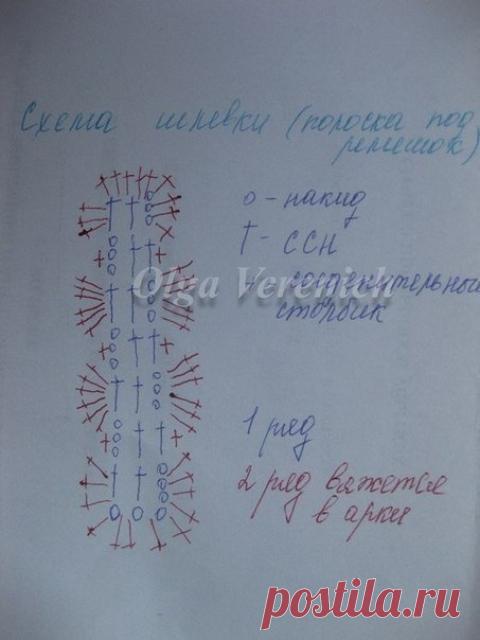 Схема шлевки (полоска под
ремешок)
o - накид
† - ССН
+ - соединительный
столбик
Olga Verenich
1 ряд
2 ряд вяжется
в арки
postila.ru